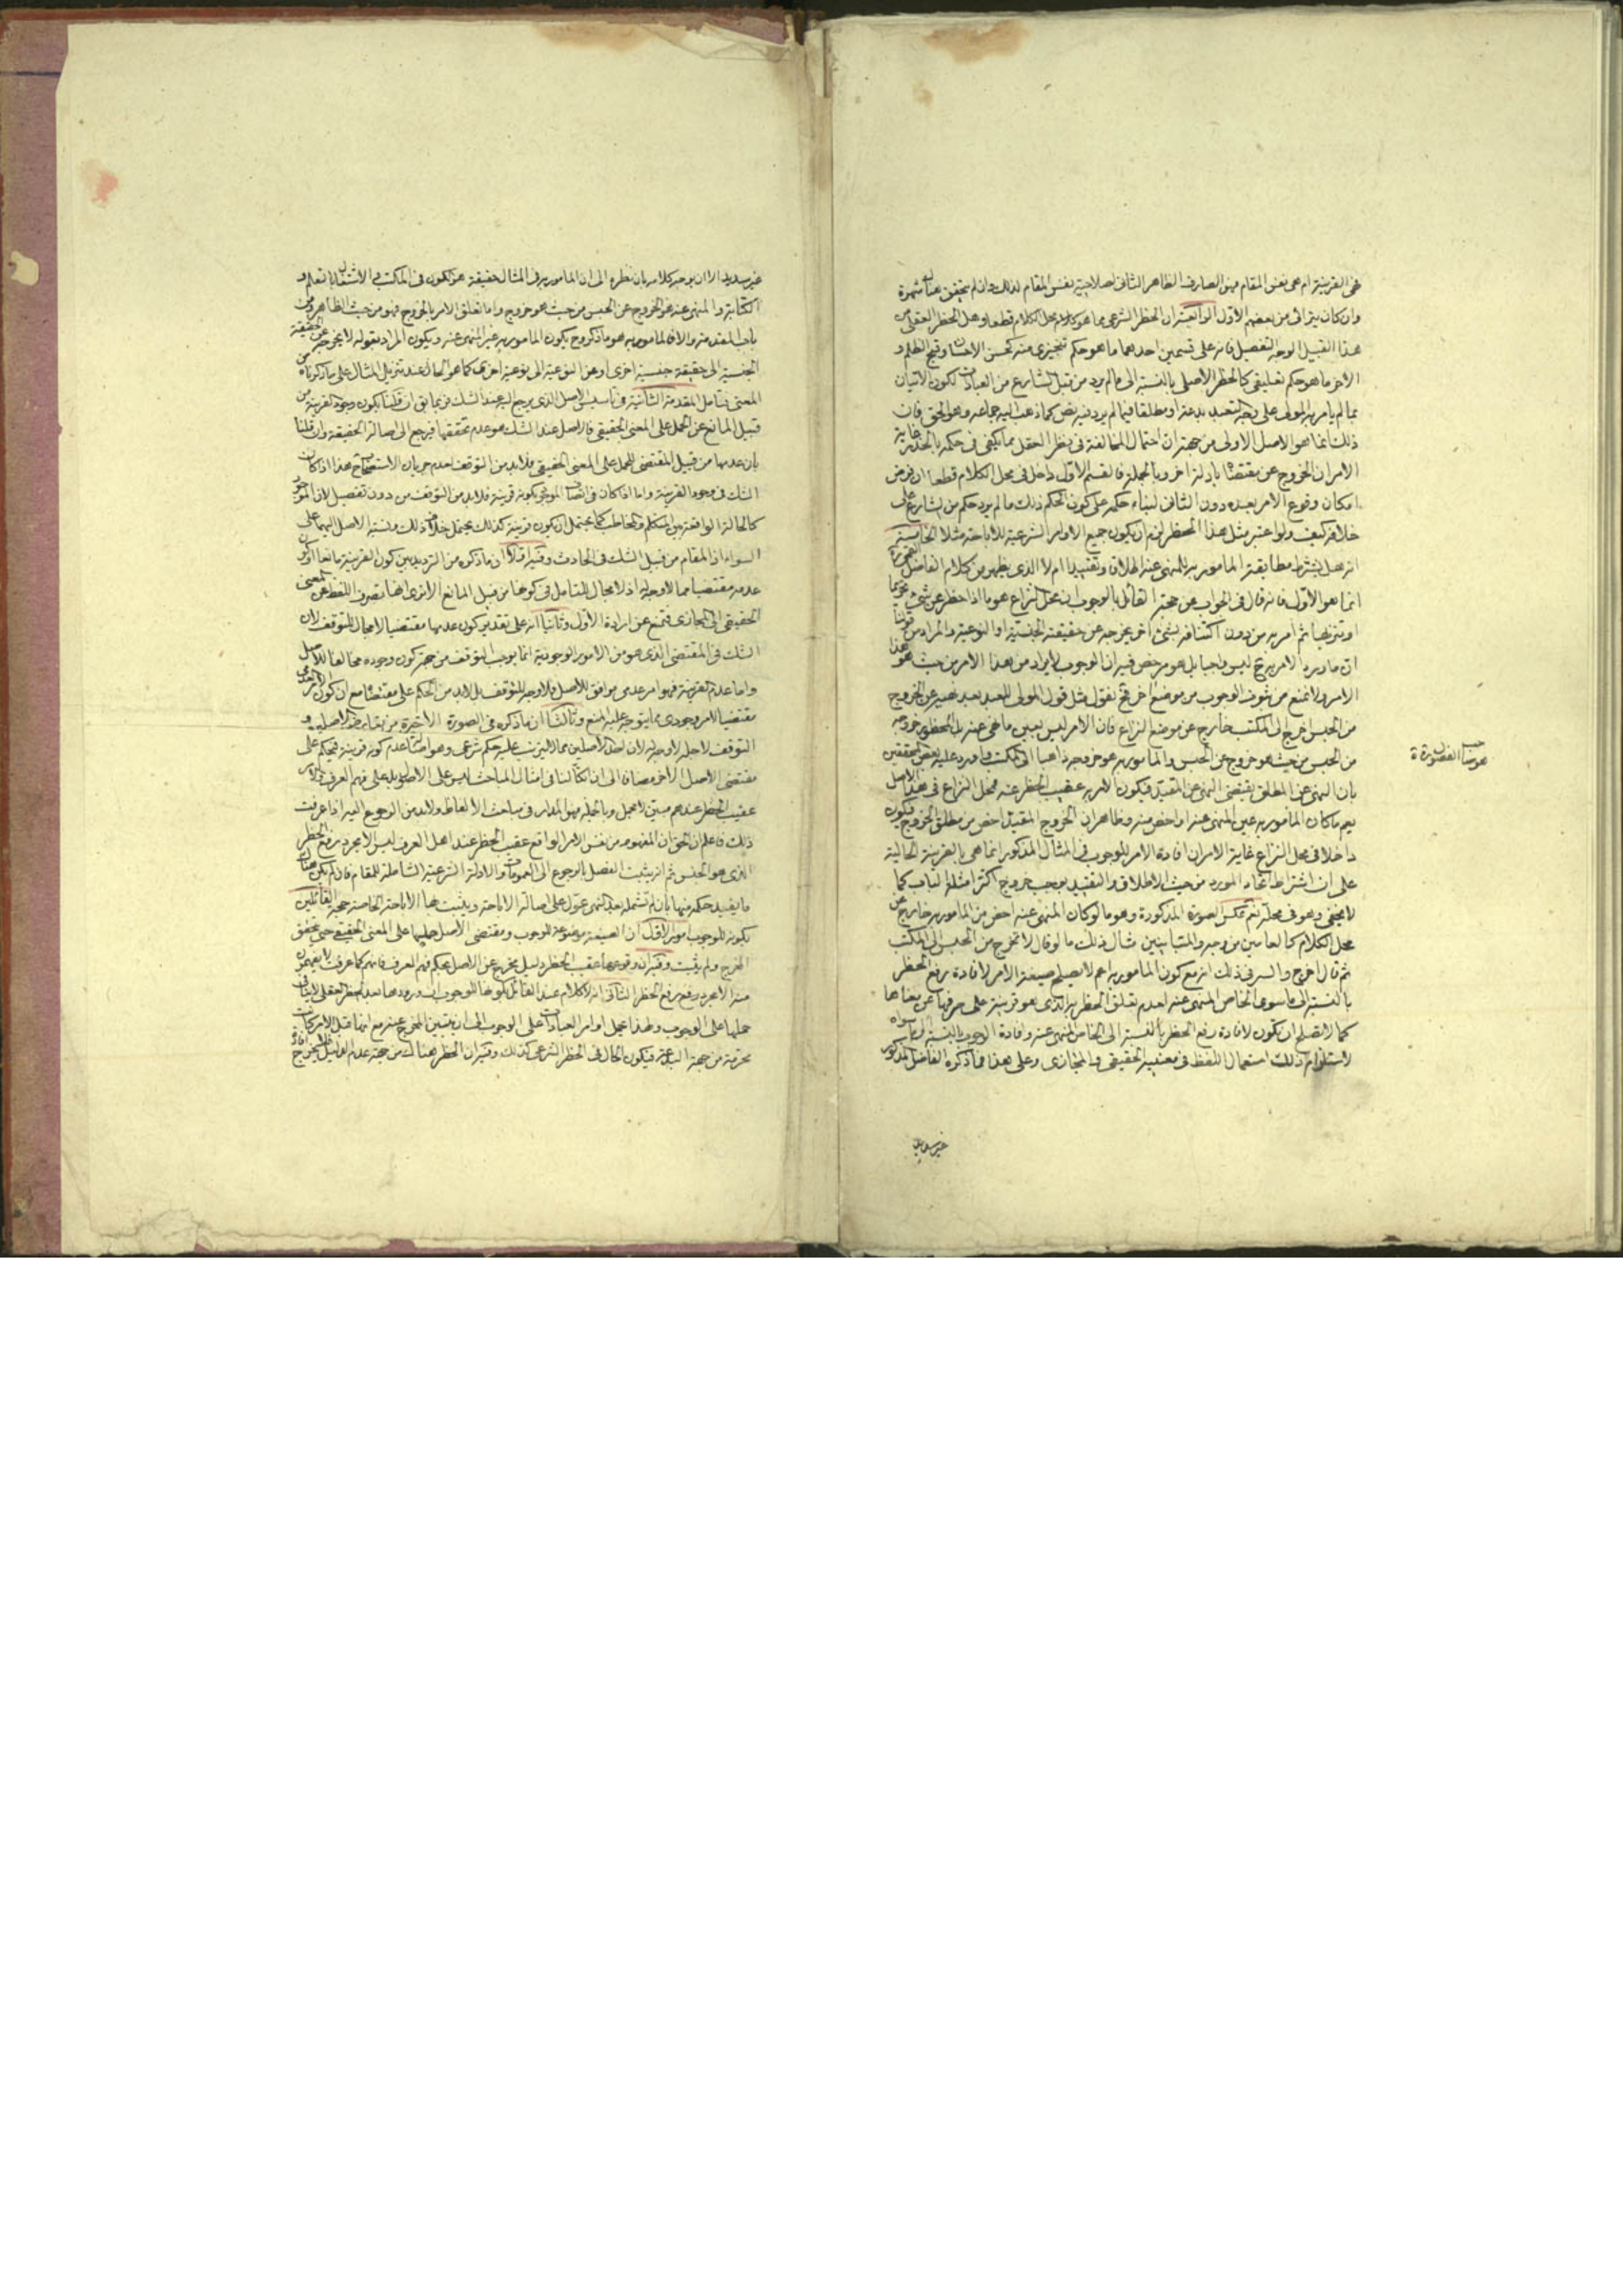 هى القرينة ام هى نفس المقام فهو الصارف الظاهر الثانى لصلاحية نفس المقام لذلك وان لم يتحقق هناك شهرة
وان كان يترائى من بعضهم الاول الرابعة ان الحظر الشرعى مما هو كلام محل الكلام قطعا وهل الحظر العقلى من
هذا القبيل الوجه التفصيل فانه على قسمين احدهما ما هو حكم تنجيزى منه كحسن الاحسان وقبح الظلم و
الاخر ما هو حكم تعليقى كالحظر الاصلى بالنسبة الى ما لم يرد من قبل الشارع من العبادات لكون الاتيان
بما لم يامر به المولى على وجه التعبد بدعة او مطلقا فيما لم يرد فيه نص كما ذهب اليه جماعة وهو الحق فان
ذلك انما هو الاصل الاولى من جهة ان احتمال المخالفة فى نظر العقل مما يكفى فى حكمه بالحذر غاية
الامر ان الخروج عن مقتضاه بادلة اخر وبالجملة فالقسم الاول داخل فى محل الكلام قطعا ان فرض
امكان وقوع الامر بعده دون الثانى لبناء حكمه على كون الحكم ذلك ما لم يرد حكم من الشارع على
خلافه كيف ولو اعتبر مثل هذا الحظر لزم ان يكون جميع الاوامر الشرعية للاباحة مثلا الخامسة
انه هل يشترط مطابقة المامور به للمنهى عنه اطلاقا وتقييدا ام لا الذى يظهر من كلام الفاضل
انما هو الاول فانه قال فى الجواب عن حجة القائل بالوجوب ان محل النزاع هو ما اذا حظر عن شئ تحريما
او تنزيها ثم امر به من دون اكتنافه بشئ اخر يخرجه عن حقيقته الجنسية او النوعية والمراد من قولنا
ان ما ورد الامر به ح ليس واجبا بل هو مرخص فيه ان الوجوب لا يراد من هذا الامر من حيث هو هذا
الامر ولا تمنع من ثبوت الوجوب من موضع اخر فح نقول مثل قول المولى للعبد بعد نهيه عن الخروج
من الحبس اخرج الى المكتب خارج عن موضع النزاع فان الامر ليس بعين ما نهى عنه بل المحظور خروجه
من الحبس من حيث هو خروج عن الحبس والمامور به هو خروجه ذاهبا الى المكتب واورد عليه بعض المحققين
بان النهى عن المطلق يقتضى النهى عن المقيد فيكون الامر به عقيب الحظر عنه فمحل النزاع فى هذا الاصل
يعم ما كان المامور به عين المنهى عنه او اخص منه وظاهر ان الخروج المقيد اخص من مطلق الخروج فيكون
داخلا فى محل النزاع غاية الامر ان افادة الامر للوجوب فى المثال المذكور انما هى بالقرينة الحالية
على ان اشتراط اتحاد المورد من حيث الاطلاق والتقييد يوجب خروج اكثر امثلة الباب كما
لا يخفى وهو فى محله نعم عكس الصورة المذكورة وهو ما لو كان المنهى عنه اخص من المامور به خارج عن
محل الكلام كالعامين من وجه والمتباينين مثال ذلك ما لو قال لا تخرج من الحبس الى المكتب
ثم قال اخرج والسر فى ذلك انه مع كون المامور به اعم لا يصلح صيغة الامر لافادة رفع الحظر
بالنسبة الى ما سوى الخاص المنهى عنه لعدم تعلق الحظر به الذى هو قرينة على صرفها عن معناها
كما لا تصلح ان تكون لافادة رفع الحظر بالنسبة الى الخاص المنهى عنه وافادة الوجوب بالنسبة الى ما سواه
لاستلزام ذلك استعمال اللفظ فى معنييه الحقيقى والمجازى وعلى هذا فما ذكره الفاضل المذكور
غير سديد
غير سديد الا ان يوجه كلامه بان نظره الى ان المامور به فى المثال حقيقة هو الكون فى المكتب والاشتغال بالتعلم و
الكتابة والمنهى عنه هو الخروج عن الحبس من حيث هو خروج واما تعلق الامر بالخروج فهو من حيث الظاهر ومن
باب المقدمة والا فالمامور به هو ما ذكر وح يكون المامور به غير المنهى عنه ويكون المراد بقوله لا يخرجه عن الحقيقة
الجنسية الى حقيقة جنسية اخرى او عن النوعية الى نوعية اخرى كما هو الحال عند تنزيل المثال على ما ذكرناه من
المعنى فتامل المقدمة الثانية فى تاسيس الاصل الذى يرجع اليه عند الشك فربما يق ان قلنا بكون وجود القرينة من
قبيل المانع عن الحمل على المعنى الحقيقى فالاصل عند الشك هو عدم تحققها فيرجع الى اصالة الحقيقة وان قلنا
بان عدمها من قبيل المقتضى للحمل على المعنى الحقيقى فلا بد من التوقف لعدم جريان الاستصحاب هذا اذا كان
الشك فى وجود القرينة واما اذا كان فى اتصاف الموجود بكونه قرينة فلا بد من التوقف من دون تفصيل لان الموجود
كالحالة الواقعة بين المتكلم والمخاطب كما يحتمل ان يكون قرينة كذلك يحتمل خلاف ذلك ونسبة الاصل اليهما على
السواء اذ المقام من قبيل الشك فى الحادث وفيه اولا ان ما ذكره من الترديد بين كون القرينة مانعا او كون
عدمه مقتضيا مما لا وجه له اذ لا مجال للتامل فى كونها من قبيل المانع الا ترى انها تصرف اللفظ عن المعنى
الحقيقى الى المجازى فتمنع عن ارادة الاول وثانيا انه على تقدير كون عدمها مقتضيا لا مجال للتوقف لان
الشك فى المقتضى الذى هو من الامور الوجودية انما يوجب التوقف من جهة كون وجوده مخالفا للاصل
واما عدم القرينة فهو امر عدمى موافق للاصل فلا وجه للتوقف بل لا بد من الحكم على مقتضاه مع ان كون الامر العدمى
مقتضيا للامر وجودى مما يتوجه عليه المنع وثالثا ان ما ذكره فى الصورة الاخيرة من
التوقف لاجله لا وجه له لان احد الاصلين مما لا يترتب عليه حكم شرعى وهو اصالة عدم كونه قرينة فيحكم على
مقتضى الاصل الاخر مضافا الى ان اتكالنا فى امثال المباحث ليس على الاصول بل على فهم العرف
عقيب الحظر عندهم مبين لا مجمل وبالجملة فهو المدار فى مباحث الالفاظ ولا بد من الرجوع اليه اذا عرفت
ذلك فاعلم ان الحق ان المفهوم من نفس الامر الواقع عقيب الحظر عند اهل العرف ليس الا مجرد رفع الحظر
الذى هو الجنس ثم انه يثبت الفصل بالرجوع الى العمومات والادلة الشرعية الشاملة للمقام فان لم يكن هناك
ما يفيد حكمه منها بان لم تشمله بعد النهى عول على اصالة الاباحة ويثبت بها الاباحة الخاصة حجة القائلين
بكونه للوجوب امور الاول ان الصيغة موضوعة للوجوب ومقتضى الاصل حملها على المعنى الحقيقى حتى يتحقق
المخرج ولم يثبت وفيه ان وقوعها عقيب الحظر دليل مخرج عن الاصل بحكم فهم العرف فانهم كما عرفت لا يفهمون
منه الا مجرد رفع الحظر الثانى انه لا كلام عند القائل بكونها للوجوب ان ورودها بعد الحظر العقلى لا ينافى
حملها على الوجوب ولهذا يحمل اوامر العبادات على الوجوب الى ان يتبين المخرج عنه مع انها قبل الامر كانت
محرمة من جهة البدعة فيكون الحال فى الحظر الشرعى كذلك وفيه ان الحظر هناك من جهة عدم الدليل